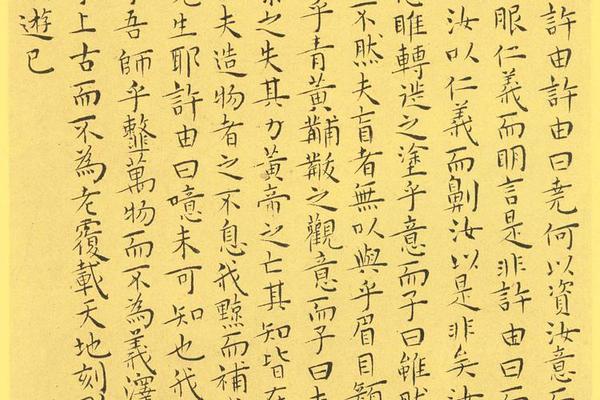 許由許由曰堯何以資汝意而
服仁義而明言是非許由曰而
汝以仁義而劓汝以是非矣汝
睢轉徙之塗乎意而子曰雖然
不然夫盲者無以與乎眉目顏
乎青黃黼黻之觀意而子曰夫
之失其力黃帝之亡其知皆在
夫造物者之不息我黥而補
先生耶許由曰噫未可知也我
吾師乎韲萬物而不為義澤
上古而不為老覆載天地刻
遊已